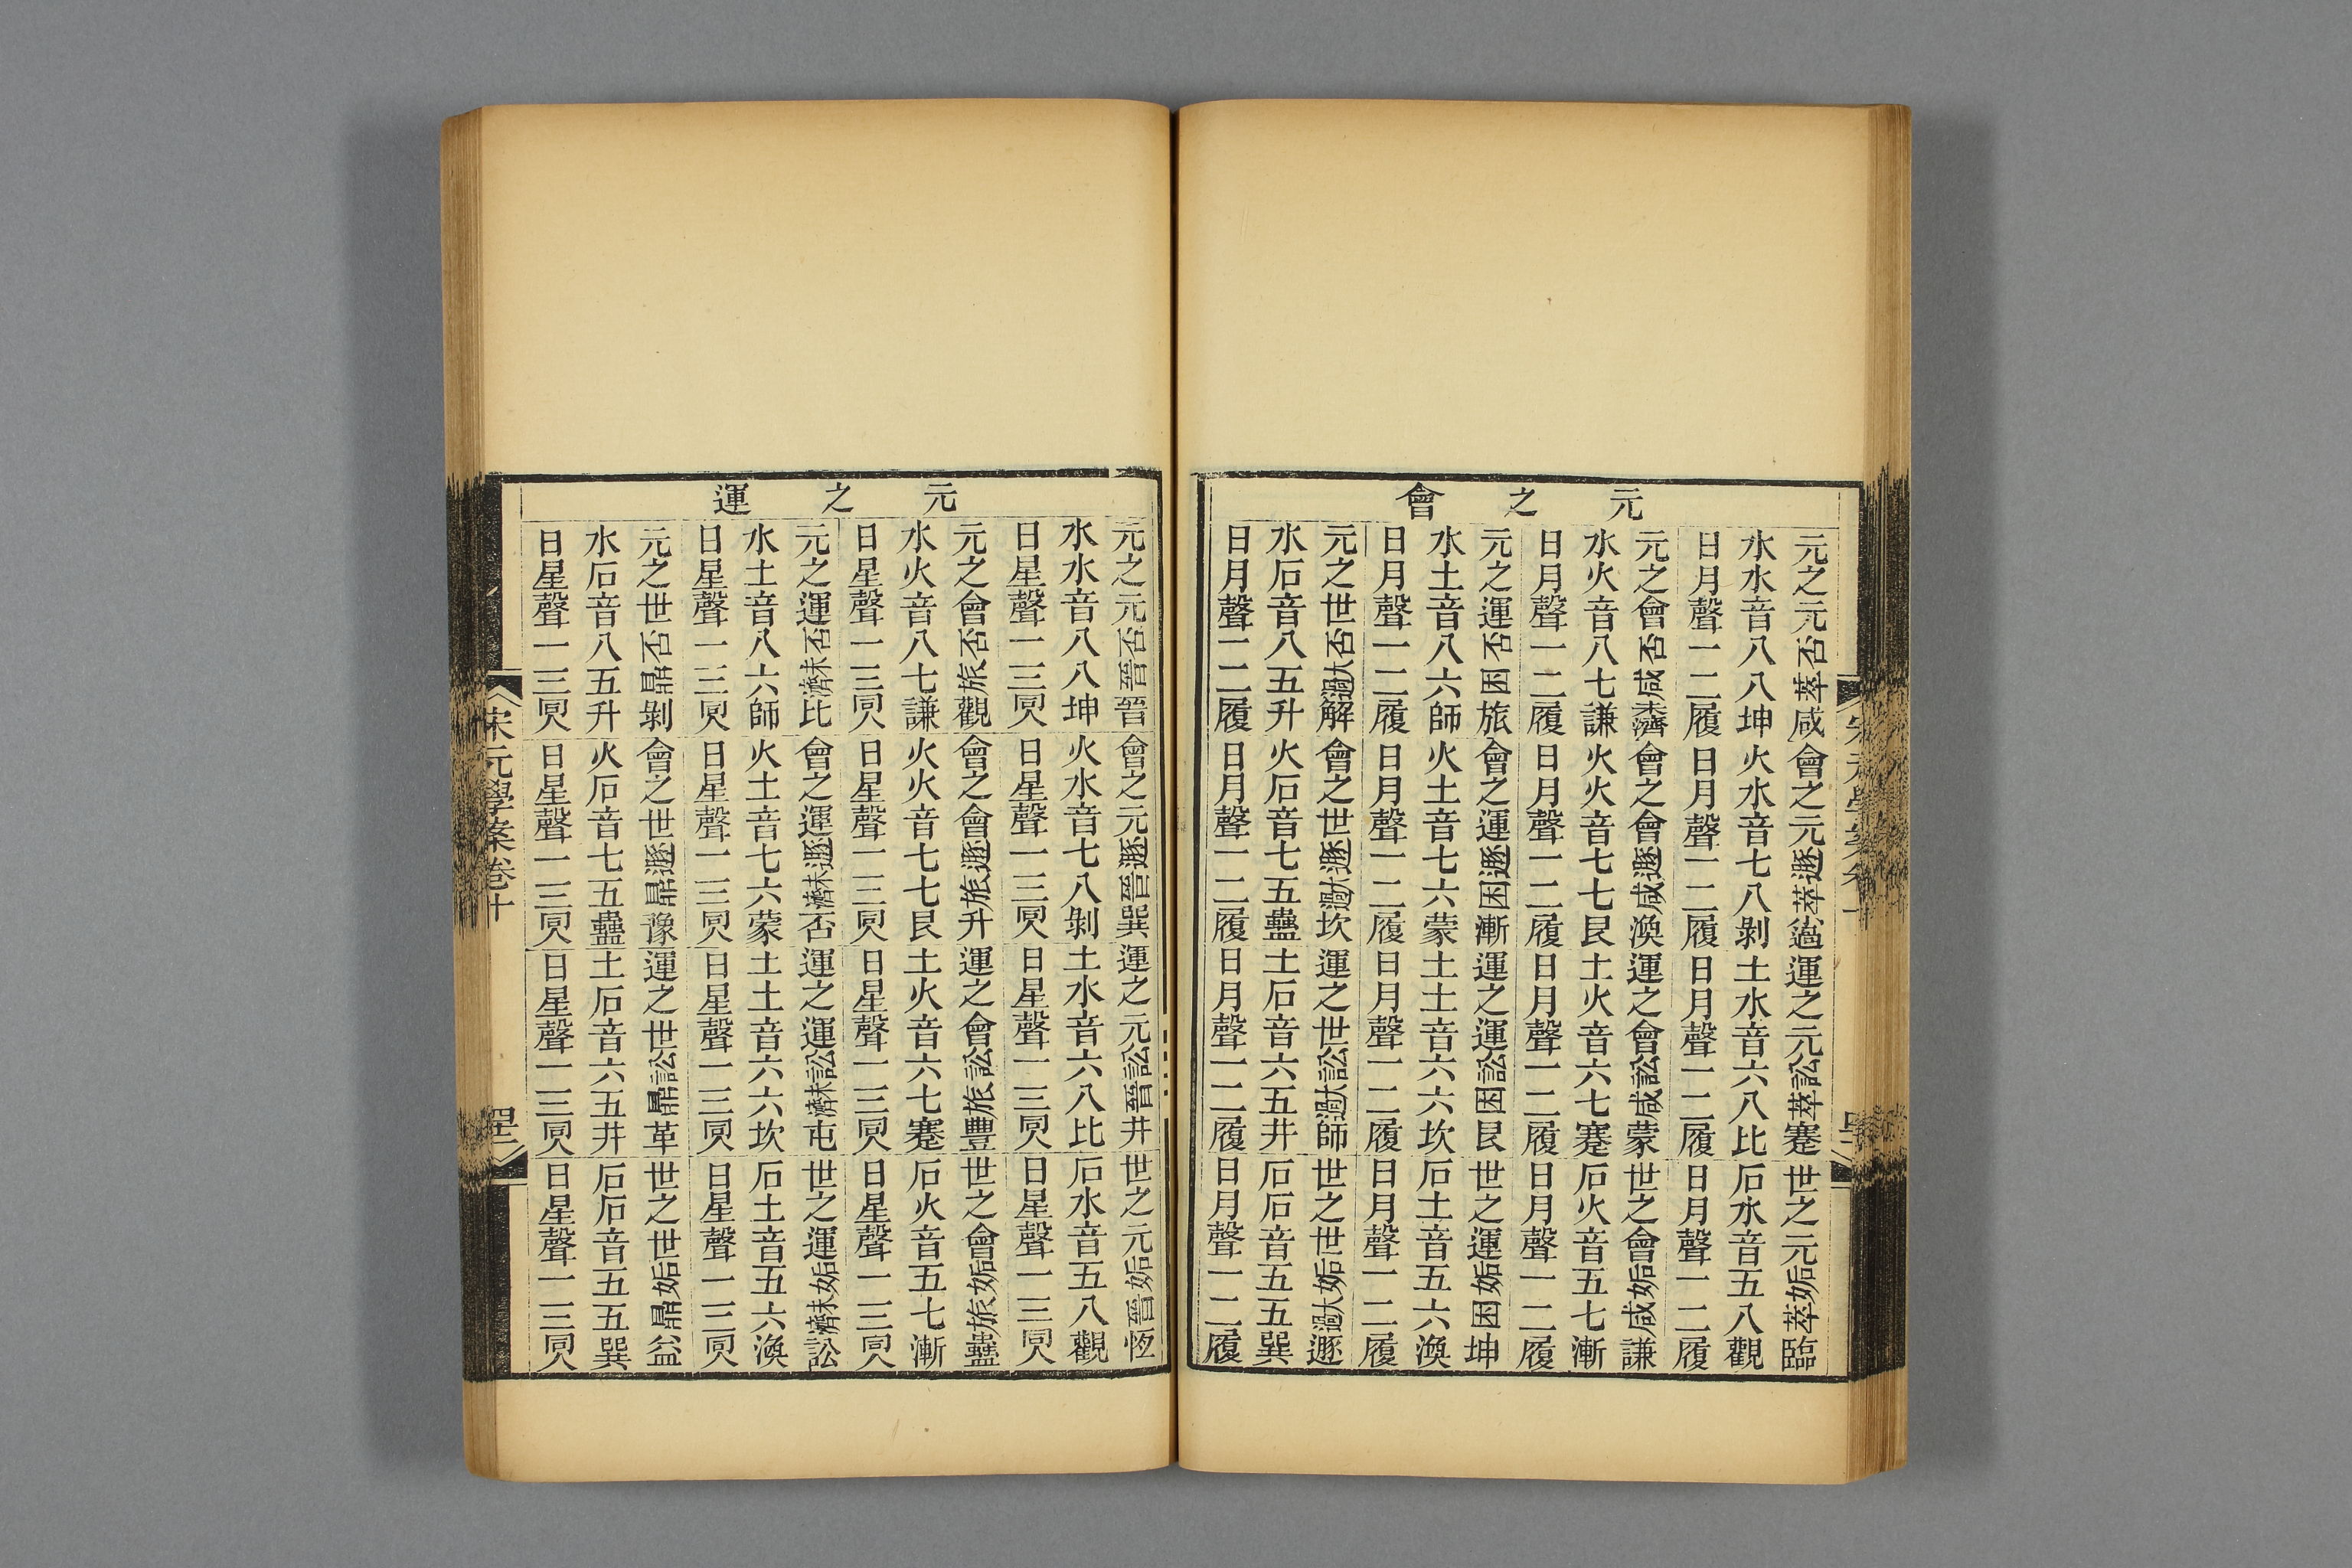 元之會
元之元否萃咸會之元遯萃小過運之元訟萃蹇世之元姤萃臨
水水音八八坤火水音七八剝土水音六八比石水音五八觀
日月聲一二履日月聲一二履日月聲一二履日月聲一二履
元之會否咸未濟會之會遯咸渙運之會訟咸蒙世之會姤咸謙
水火音八七謙火火音七七艮土火音六七蹇石火音五七漸
日月聲一二履日月聲一二履日月聲一二履日月聲一二履
元之運否困旅會之運遯困漸運之運訟困艮世之運姤困坤
水土音八六師火土音七六蒙土土音六六坎石土音五六渙
日月聲一二履日月聲一二履日月聲一二履日月聲一二履
元之世否大過解會之世遯大過坎運之世訟大過師世之世姤大過遯
水石音八五升火石音七五蠱土石音六五井石石音五五巽
日月聲一二履日月聲一二履日月聲一二履日月聲一二履
元之運
元之元否晉晉會之元遯晉巽運之元訟晉井世之元姤晉恆
水水音八八坤火水音七八剝土水音六八比石水音五八觀
日星聲一三同人日星聲一三同人日星聲一三同人日星聲一三同人
元之會否旅觀會之會遯旅升運之會訟旅豐世之會姤旅蠱
水火音八七謙火火音七七艮土火音六七蹇石火音五七漸
日星聲一三同人日星聲一三同人日星聲一三同人日星聲一三同人
元之運否未濟比會之運遯未濟否運之運訟未濟屯世之運姤未濟訟
水土音八六師火土音七六蒙土土音六六坎石土音五六渙
日星聲一三同人日星聲一三同人日星聲一三同人日星聲一三同人
元之世否鼎剝會之世遯鼎豫運之世訟鼎革世之世姤鼎益
水石音八五升火石音七五蠱土石音六五井石石音五五巽
日星聲一三同人日星聲一三同人日星聲一三同人日星聲一三同人
宋元學案卷十